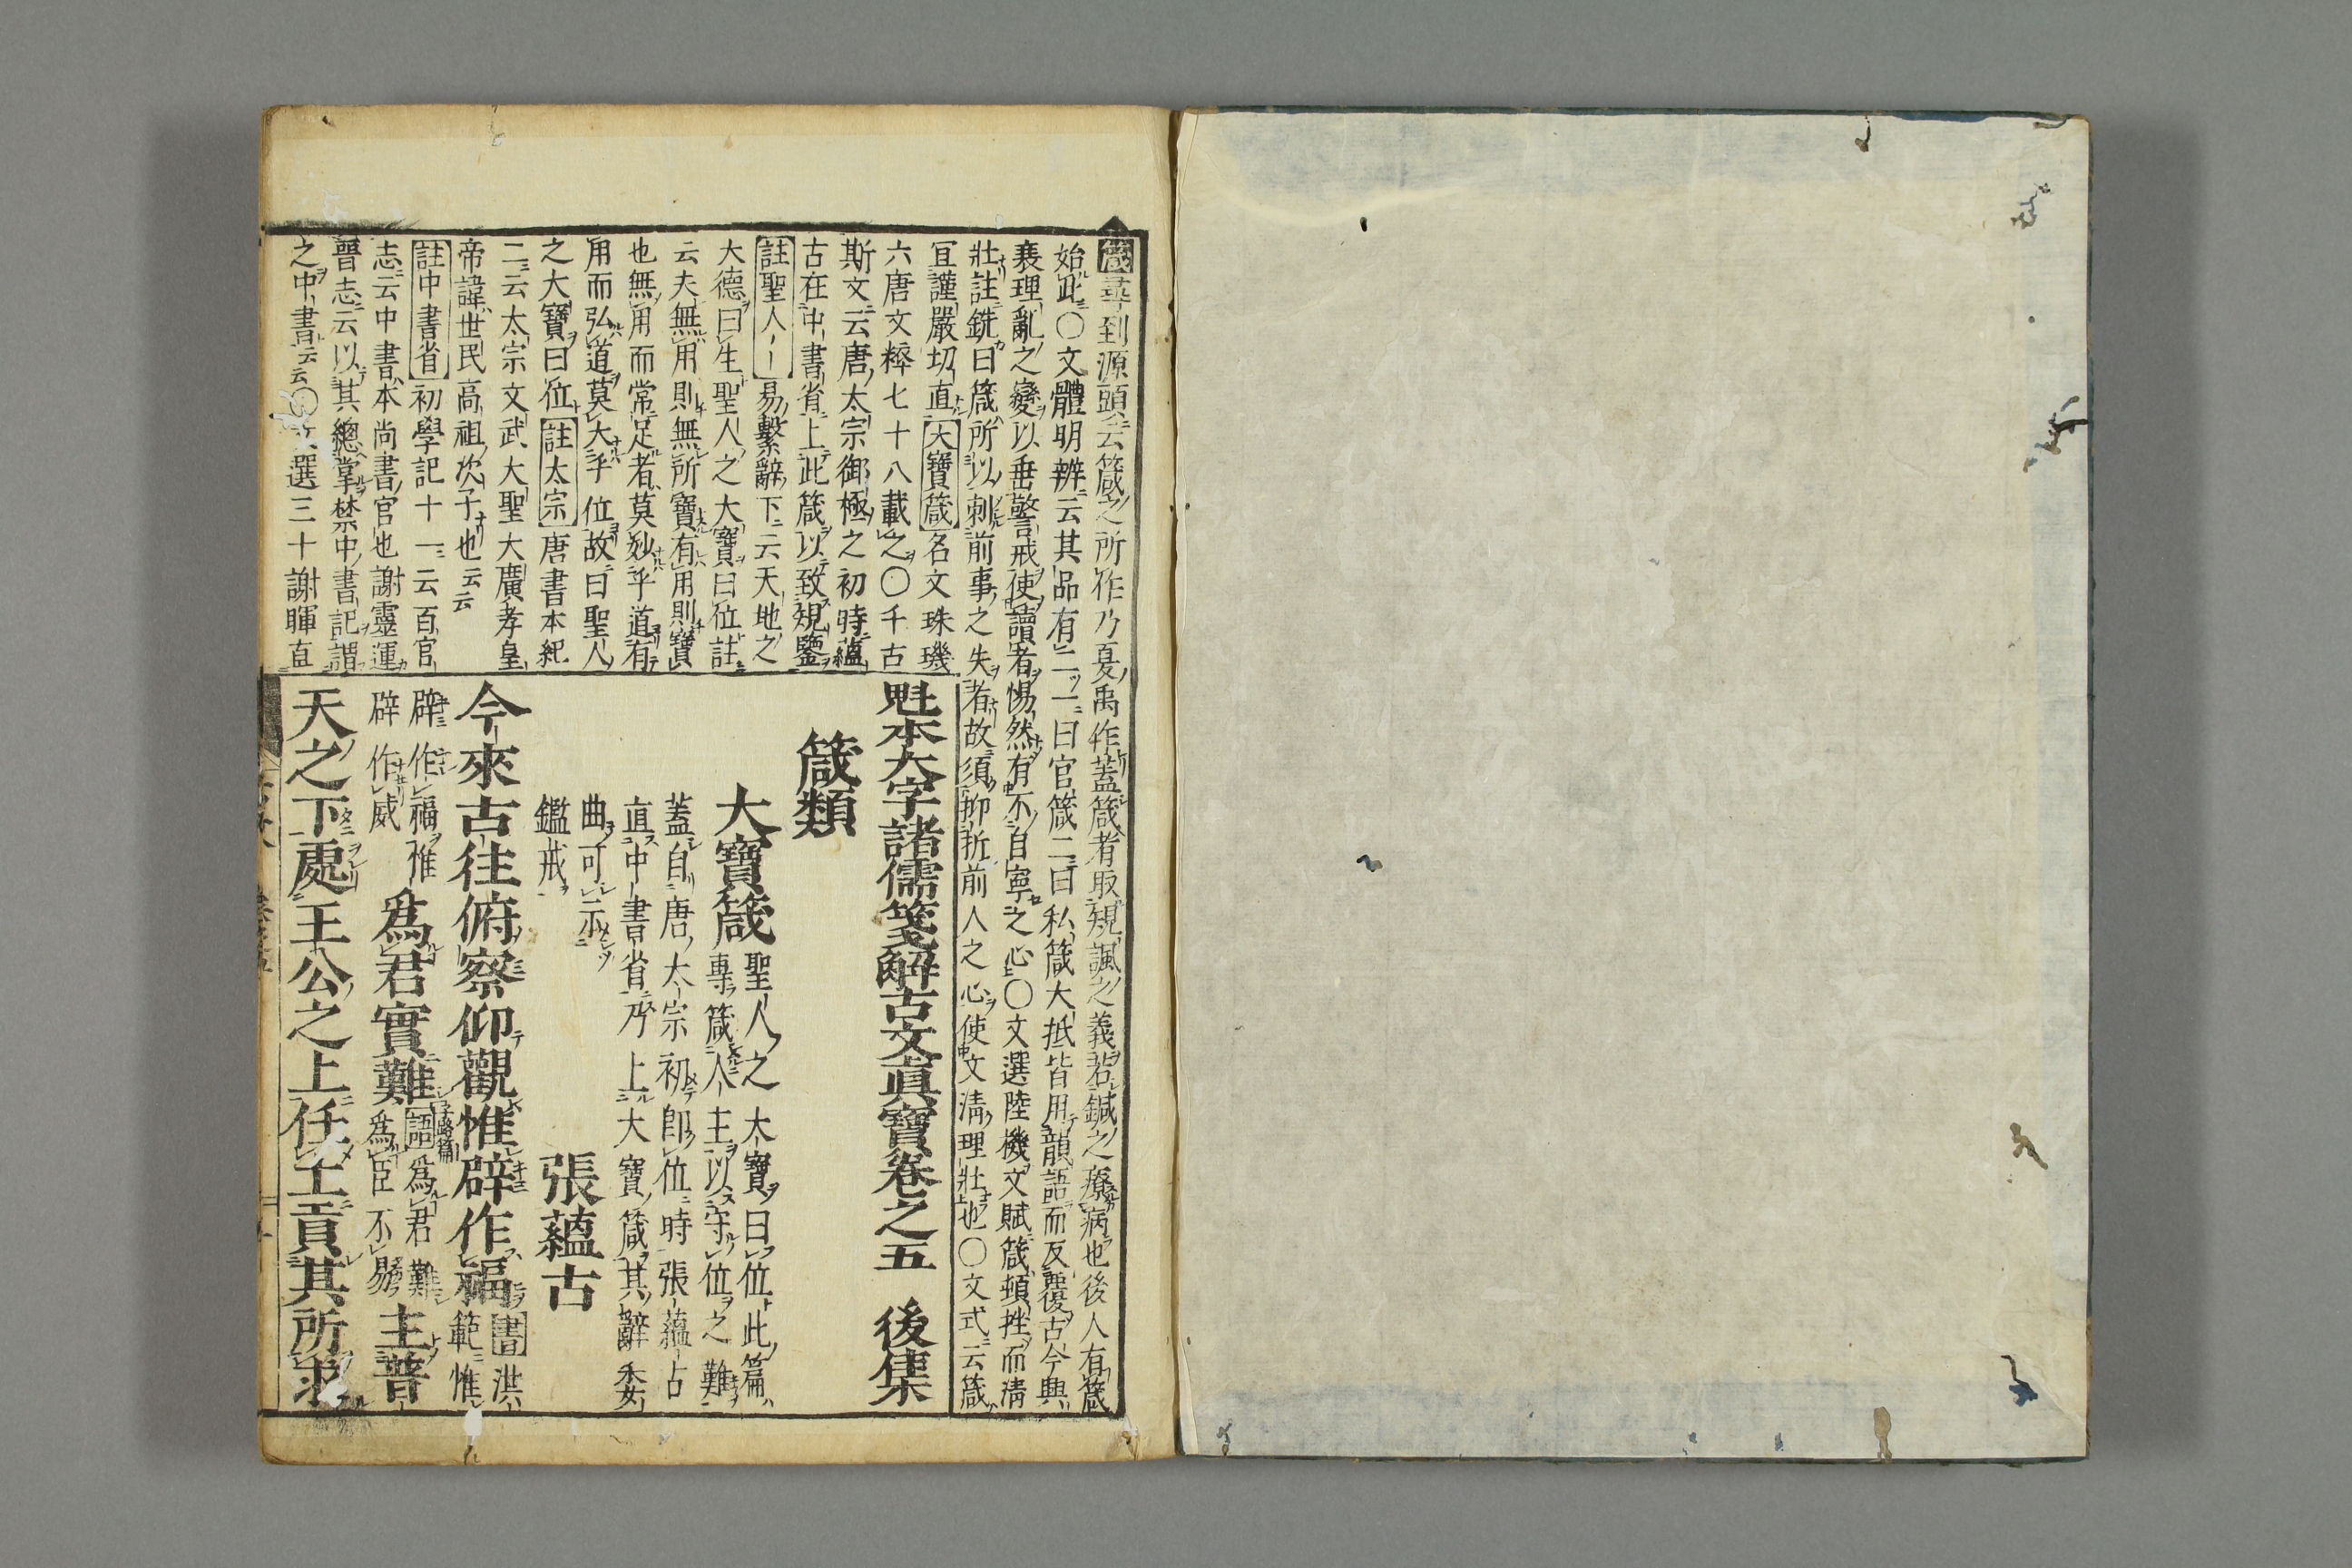 箴尋到源頭云箴之所作乃夏禹作蓋箴者取規諷之義若鍼之療病也後人有箴
始此〇文體明辨云其品有二一曰官箴二曰私箴大抵皆用韻語而反覆古今興
衰理亂之變以垂警戒使讀者惕然有不自寧之心〇文選陸機文賦箴頓挫而清
壯註銑曰箴所以刺前事之失者故須抑折前人之心使文清理壯也〇文式云箴
宜謹嚴切直大寶箴名文珠璣
六唐文粹七十八載之〇千古
斯文云唐太宗御極之初時蘊
古在中書省上此箴以致規鑒
註聖人〡〡易繫辭下云天地之
大德曰生聖人之大寶曰位註
云夫無用則無所寶有用則寶
也無用而常足者莫妙乎道有
用而弘道莫大乎位故曰聖人
之大寶曰位註太宗唐書本紀
二云太宗文武大聖大廣孝皇
帝諱世民高祖次子也云云
註中書省初學記十一云百官
志云中書本尚書官也謝靈運
晉志云以其總掌禁中書記謂
之中書云云〇文選三十謝暉直
魁本大字諸儒箋解古文眞寶卷之五 後集
箴類
大寶箴 聖人之大寶曰位此篇
專箴人主以守位之難
蓋自唐太宗初卽位時張蘊古
直中書省乃上大寶箴其辭委
曲可示
鑑戒
張蘊古
今來古往俯察仰觀惟辟作福書洪範惟
辟作福惟
辟作威
爲君實難語子路篇爲君難
爲臣不易
主普
天之下處王公之上任土貢其所求